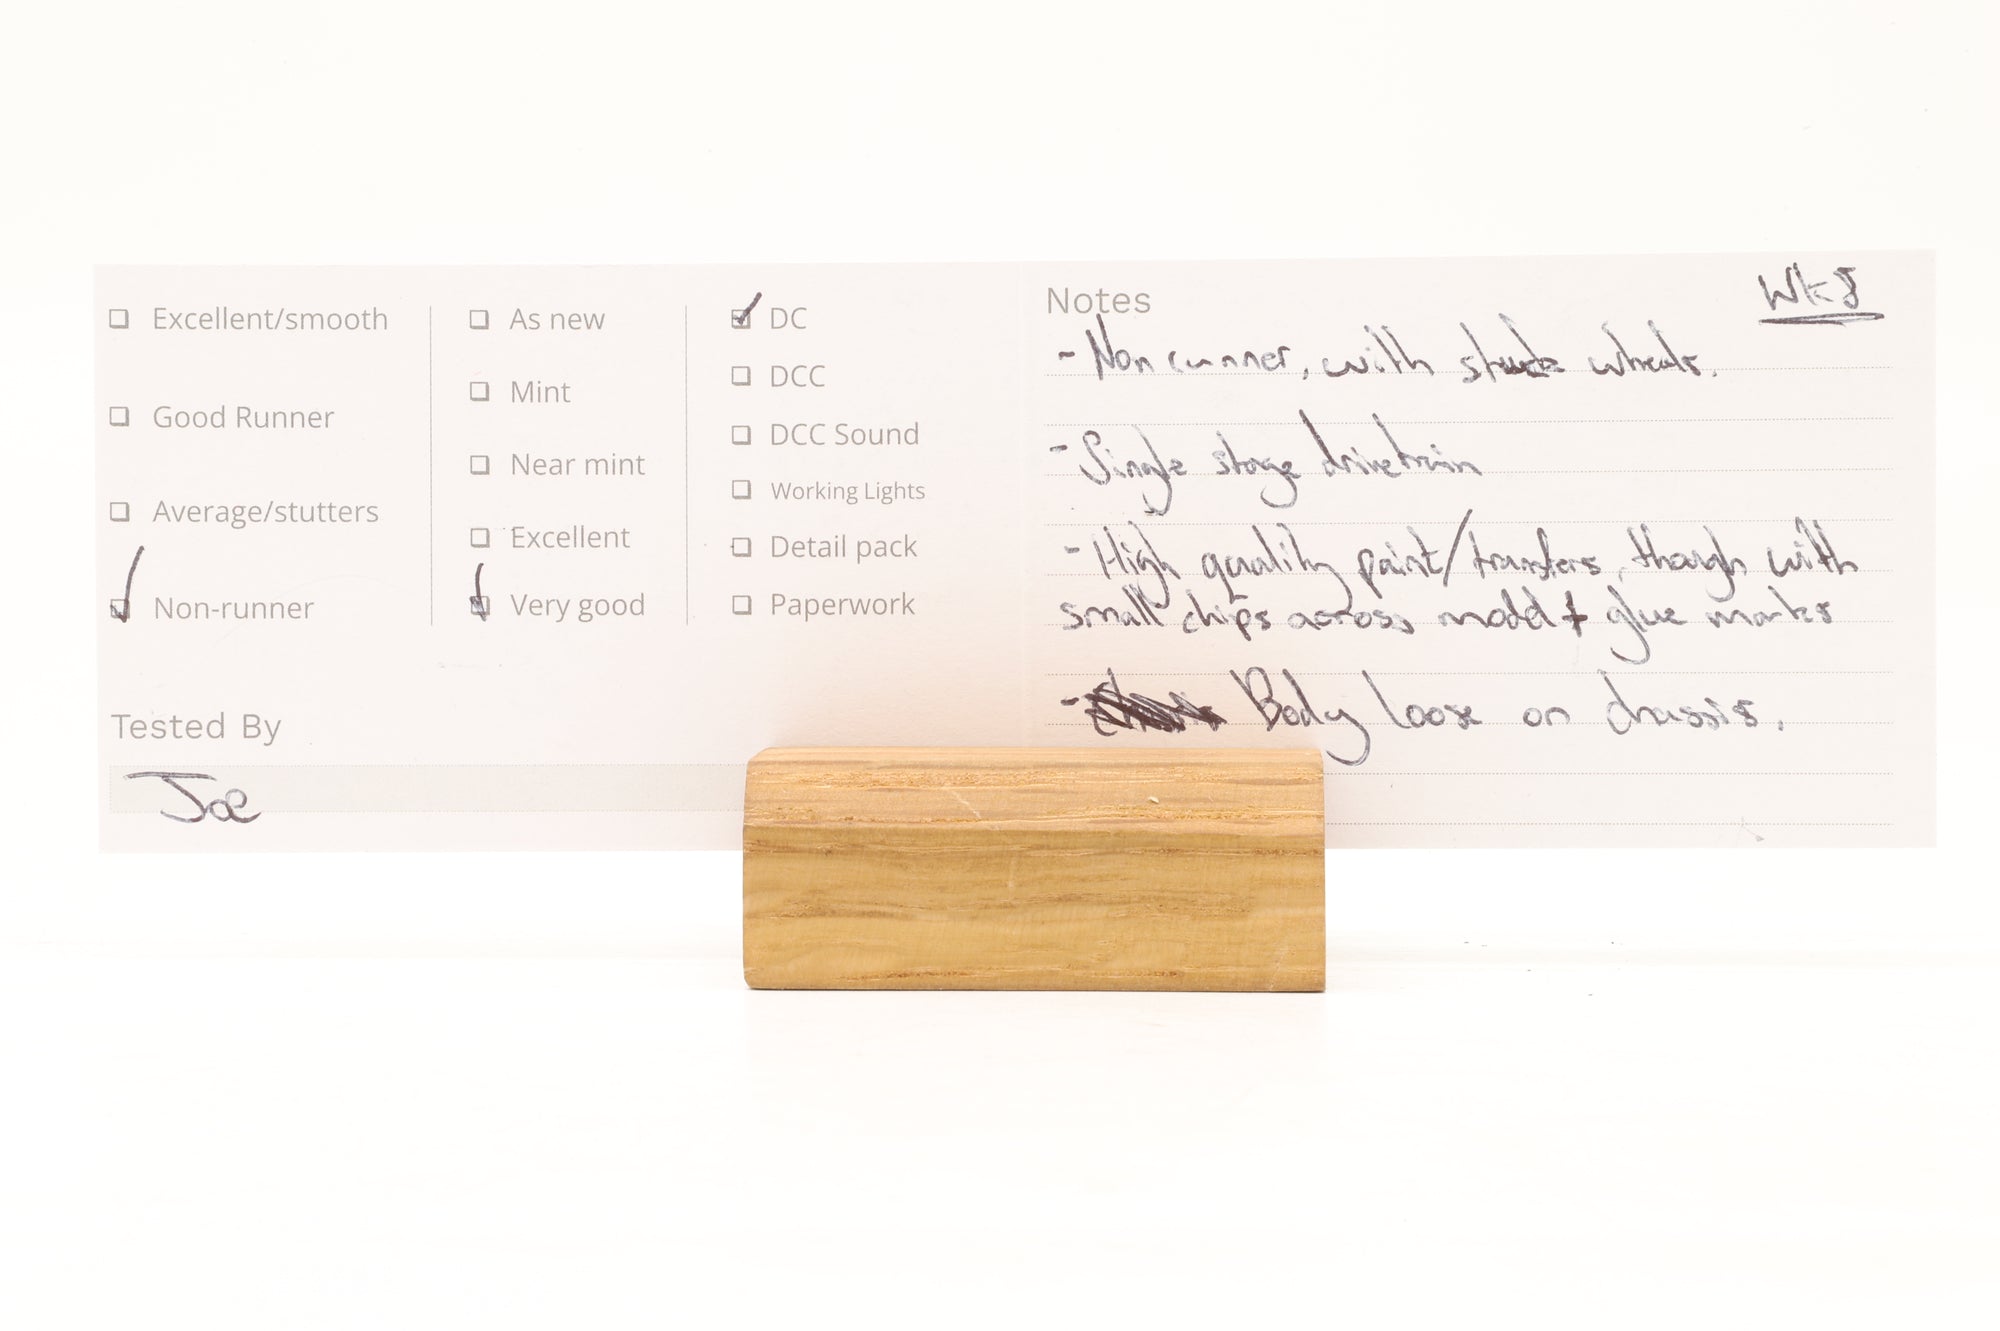 Excellent/smooth
Good Runner
Average/stutters
Non-runner
As new
Mint
Near mint
Excellent
Very good
DC
DCC
DCC Sound
Working Lights
Detail pack
Paperwork
Tested By
Joe
Notes
Wk8
- Non runner, with stuck wheels.
- Single stage drivetrain
- High quality paint/transfers, though with
small chips across model + glue marks
- Body loose on chassis.